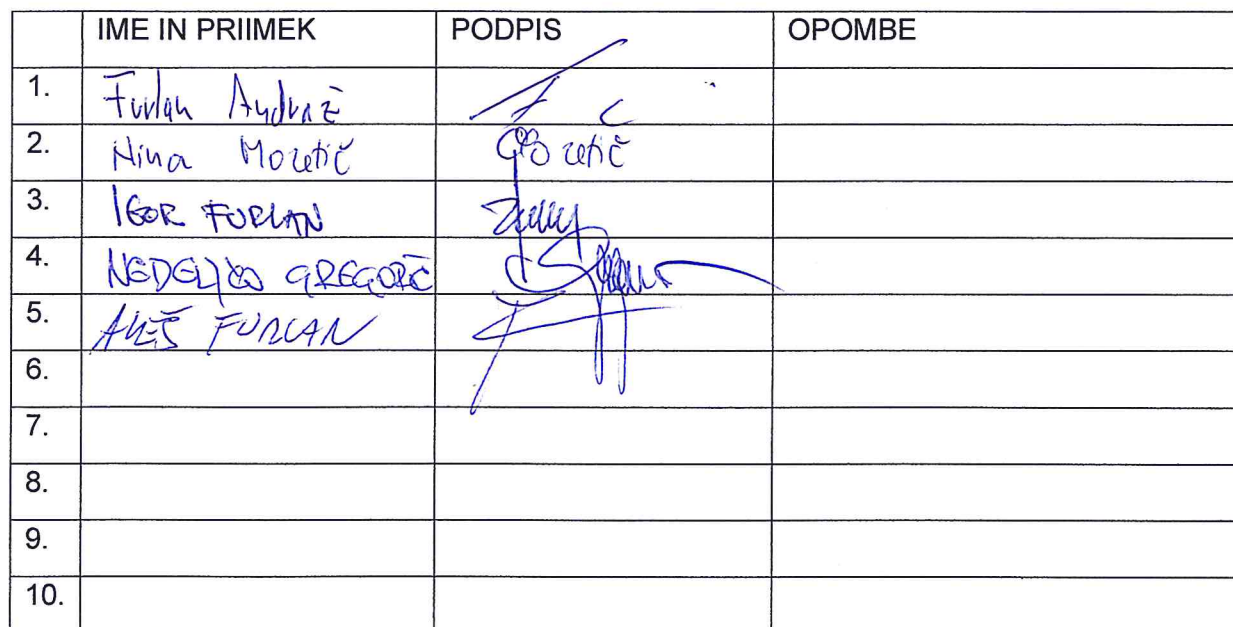 IME IN PRIIMEK PODPIS OPOMBE
1. Furlan Andraž
2. Nina Mozetič Mozetič
3. IGOR FURLAN
4. NEDELJKO GREGORČ
5. ALEŠ FURLAN
6.
7.
8.
9.
10.